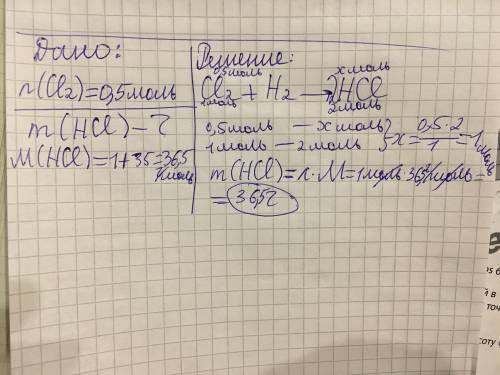 Дано:
n(Cl₂)=0,5моль
m(HCl)-?
M(HCl)=1+35=36,5 г/моль
Решение:
0,5моль х моль
Cl₂ + H₂ → 2HCl
1моль 2моль
0,5моль — х моль } х = 0,5·2 / 1 = 1 моль
1моль — 2моль
m(HCl)=n·M=1моль·36,5г/моль=
=36,5г